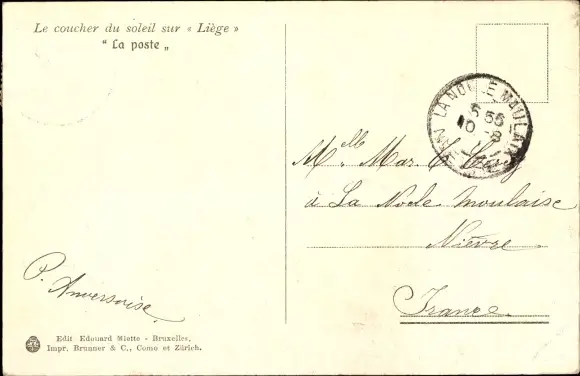 Le coucher du soleil sur « Liège »
“ La poste „
LA NOCLE MAULAIX
55
10 -8
Mlle Mar.
à La Nocle Moulaise
Nièvre
France.
P. Anversoise
Edit Edouard Miotto - Bruxelles.
Impr. Brunner & C., Como et Zürich.